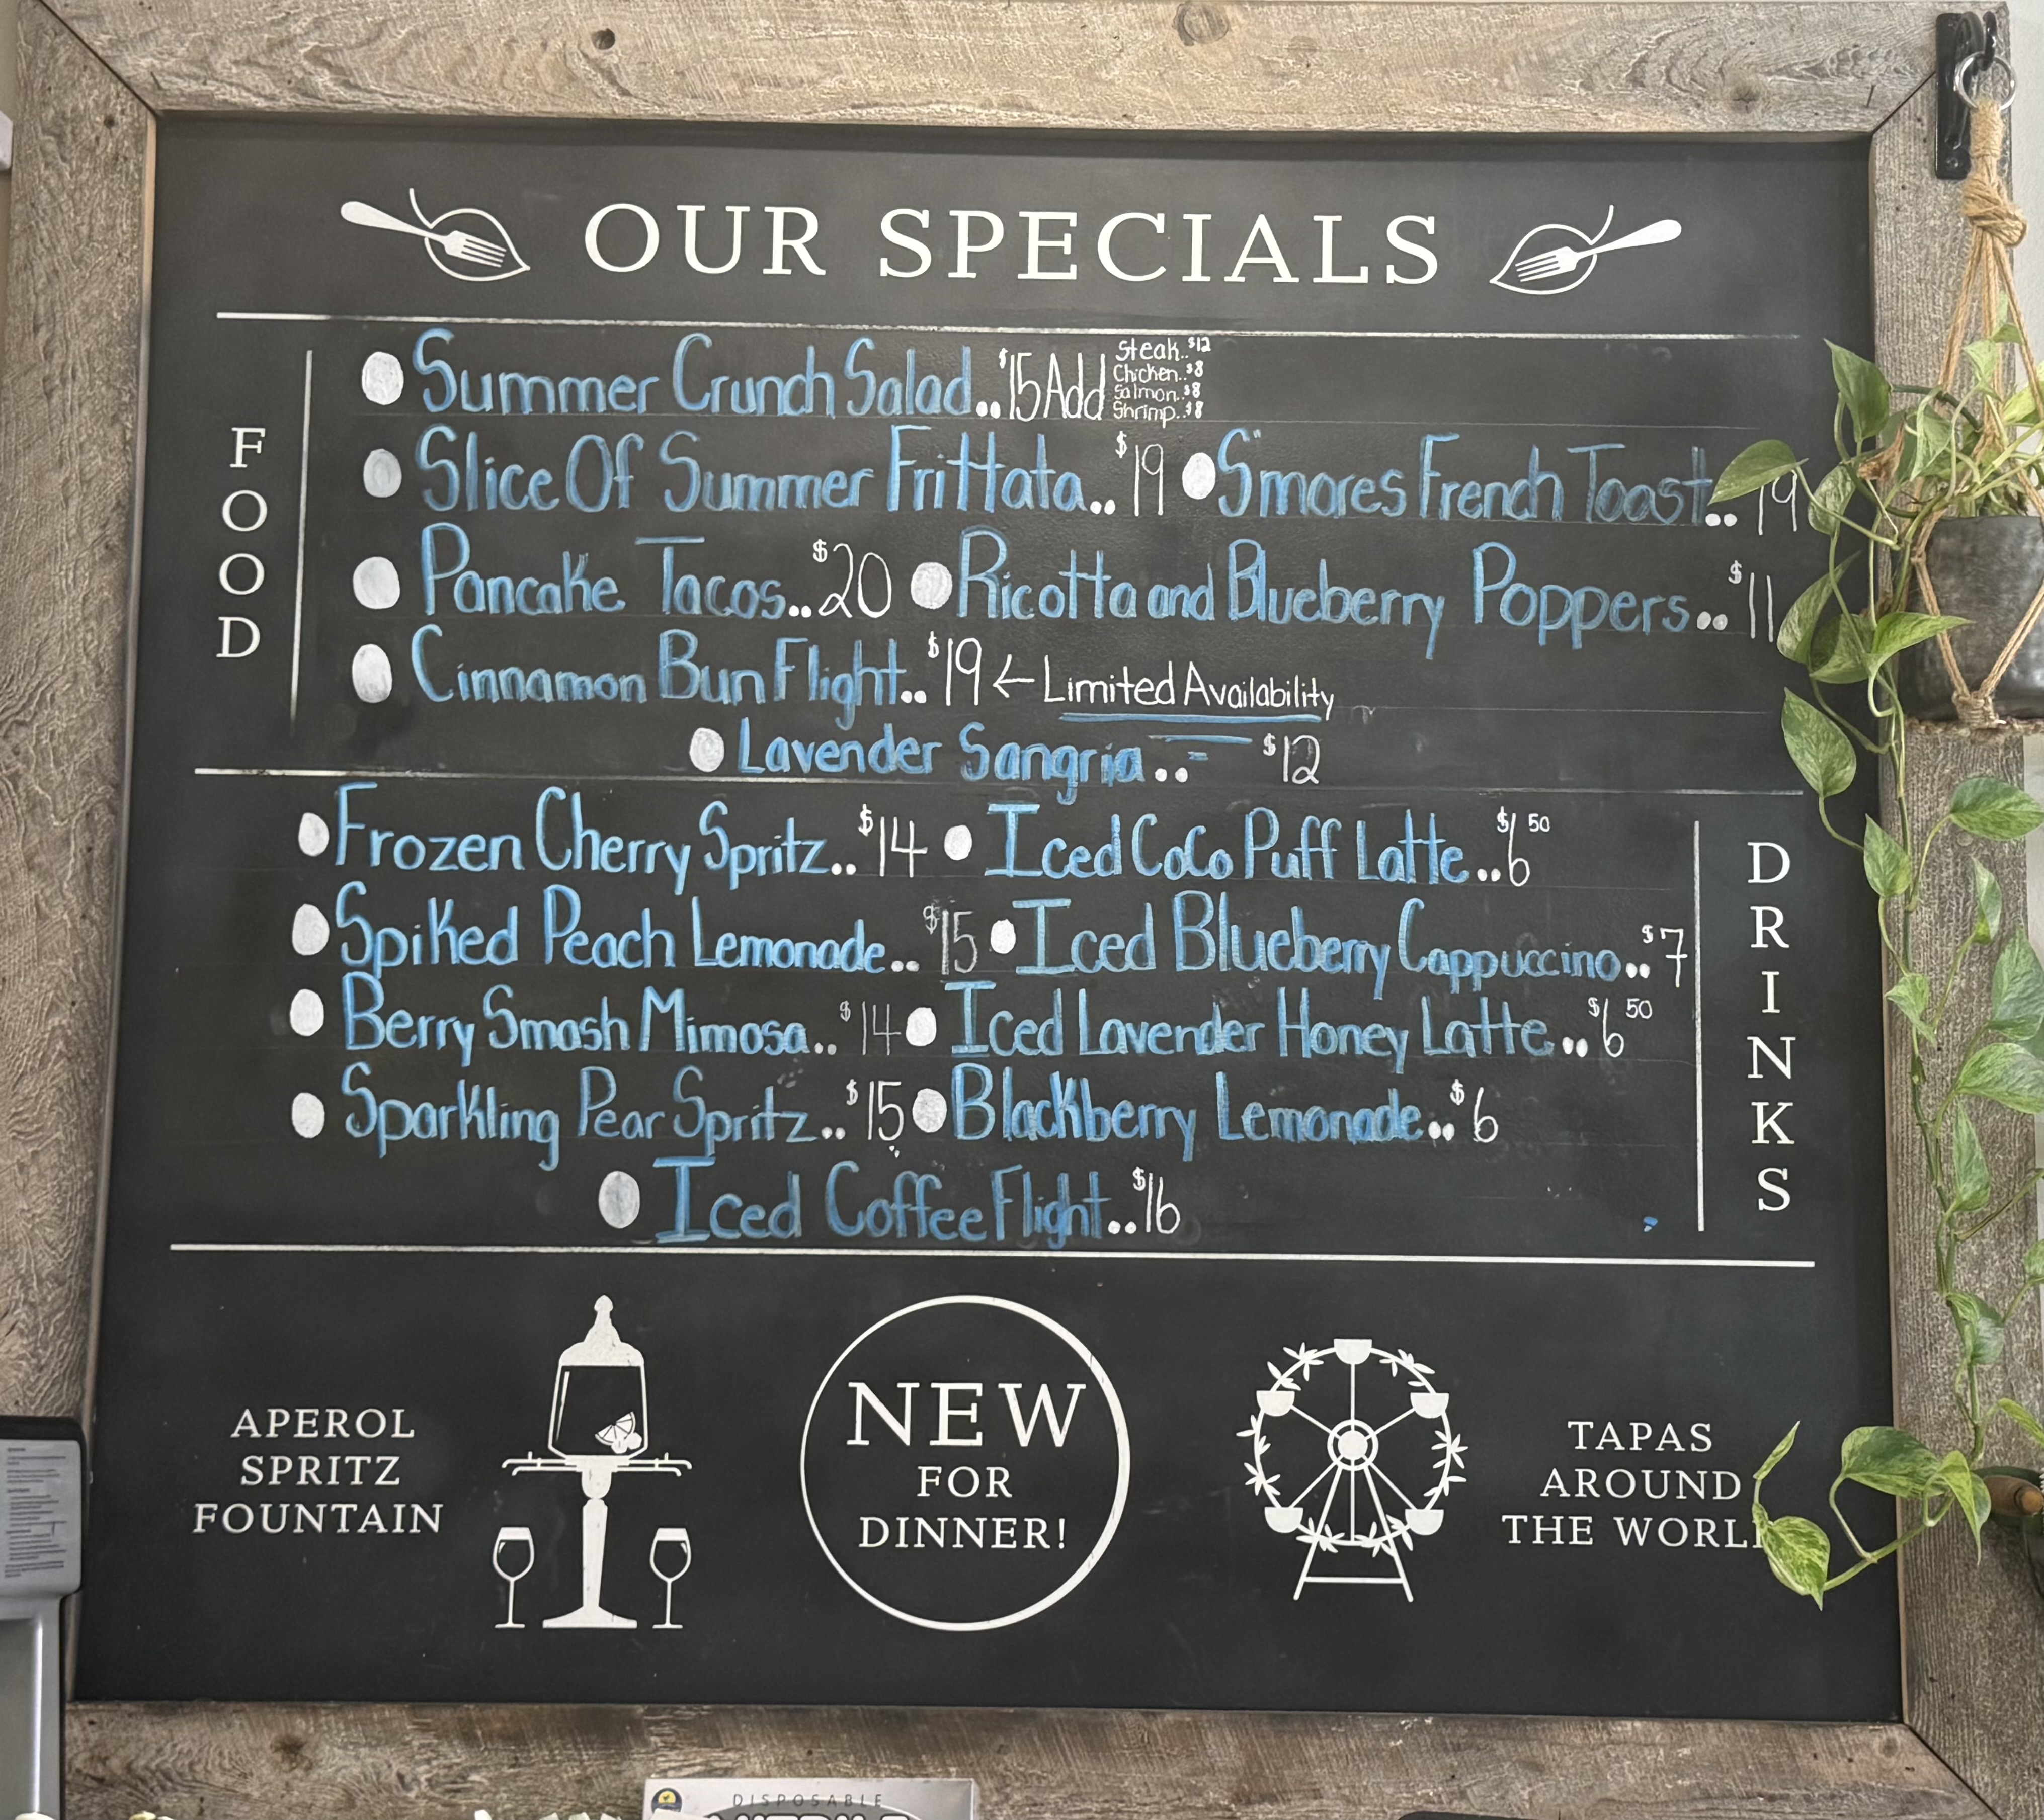 OUR SPECIALS
FOOD
Summer Crunch Salad..$15 Add
Steak..$12
Chicken..$8
Salmon..$8
Shrimp..$8
Slice Of Summer Frittata..$19 S'mores French Toast..19
Pancake Tacos..$20 Ricotta and Blueberry Poppers..$11
Cinnamon Bun Flight..$19 ← Limited Availability
Lavender Sangria.. $12
DRINKS
Frozen Cherry Spritz..$14 Iced CoCo Puff Latte..$6 50
Spiked Peach Lemonade..$15 Iced Blueberry Cappuccino..$7
Berry Smash Mimosa..$14 Iced Lavender Honey Latte..$6 50
Sparkling Pear Spritz..$15 Blackberry Lemonade..$6
Iced Coffee Flight..$16
APEROL
SPRITZ
FOUNTAIN
NEW
FOR
DINNER!
TAPAS
AROUND
THE WORL
DISPOSABLE